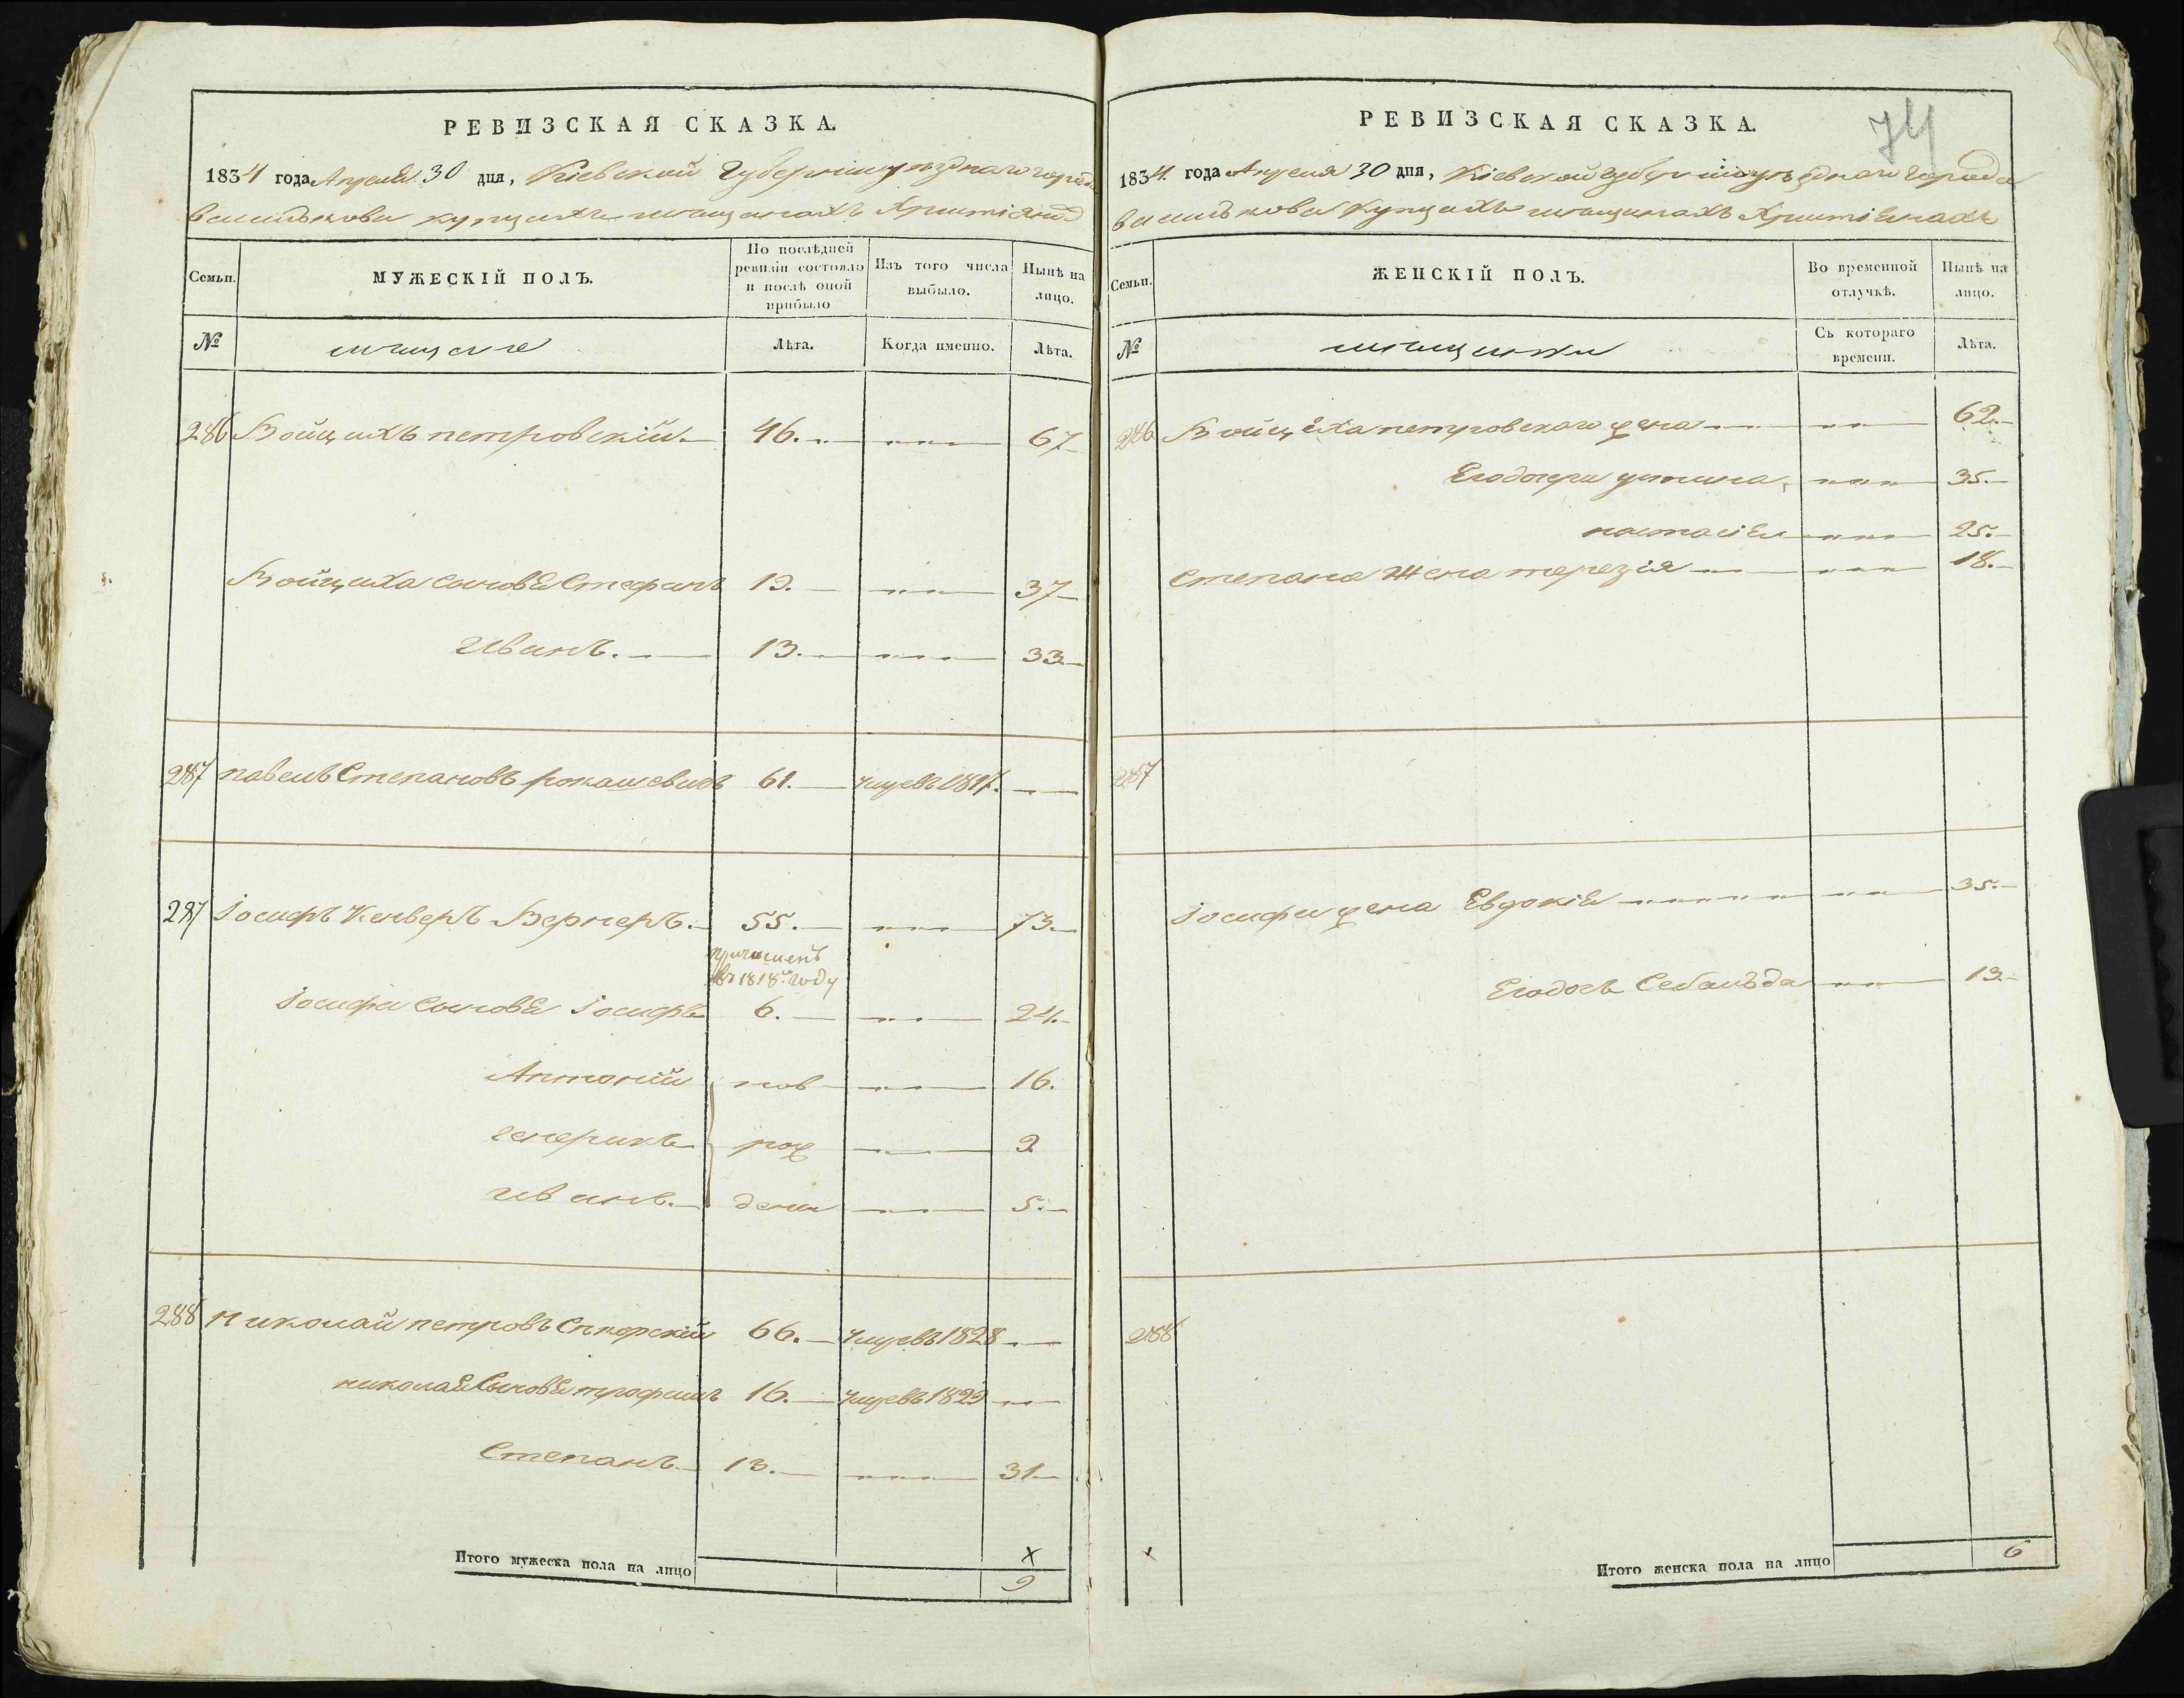 РЕВИЗСКАЯ СКАЗКА.
1834 года Апреля 30 дня, Кіевской Губерніи уезднаго города
Василькова купцахъ мещанахъ Христіянъ
Семьи.
МУЖЕСКІЙ ПОЛЪ.
По послѣдней ревизіи состояло и послѣ оной прибыло
Изъ того числа выбыло.
Нынѣ на лицо.
№
мещане
Лѣта.
Когда именно.
Лѣта.
286 Войцихъ петровскій. 46. 67
Войциха сыновя Стефанъ 19. 37
Иванъ. 13. 33
287 павелъ Степановъ рокашевичъ 61. умревъ 1817.
287 Іосифъ Венверъ Вернеръ. 55. 73
причисленъ
въ 1818м году
Іосифа сыновя Іосифъ 6. 24.
Антоній нов 16.
генерикъ рож 9
Иванъ. дени 5.
288 Николай петровъ Сикорскій 66. умревъ 1828
николая Сыновя трофимъ 16. умревъ 1829
Степанъ 13. 31
Итого мужеска пола на лицо 9
РЕВИЗСКАЯ СКАЗКА.
74
1834. года Апреля 30 дня, Кіевской губерніи уезднаго города
василькова Купцахъ мещанахъ Христіянахъ
Семьи.
ЖЕНСКІЙ ПОЛЪ.
Во временной отлучкѣ.
Нынѣ на лицо.
№
мещанки
Съ котораго времени.
Лѣта.
286 Войцеха петровскаго жена 62.
Его дочери устина, 35.
настасія 25.
Степана Жена терезія 18.
287
Іосифа жена Евдокія 35.
Его дочь Себальда 13.
288
Итого женска пола на лицо 6